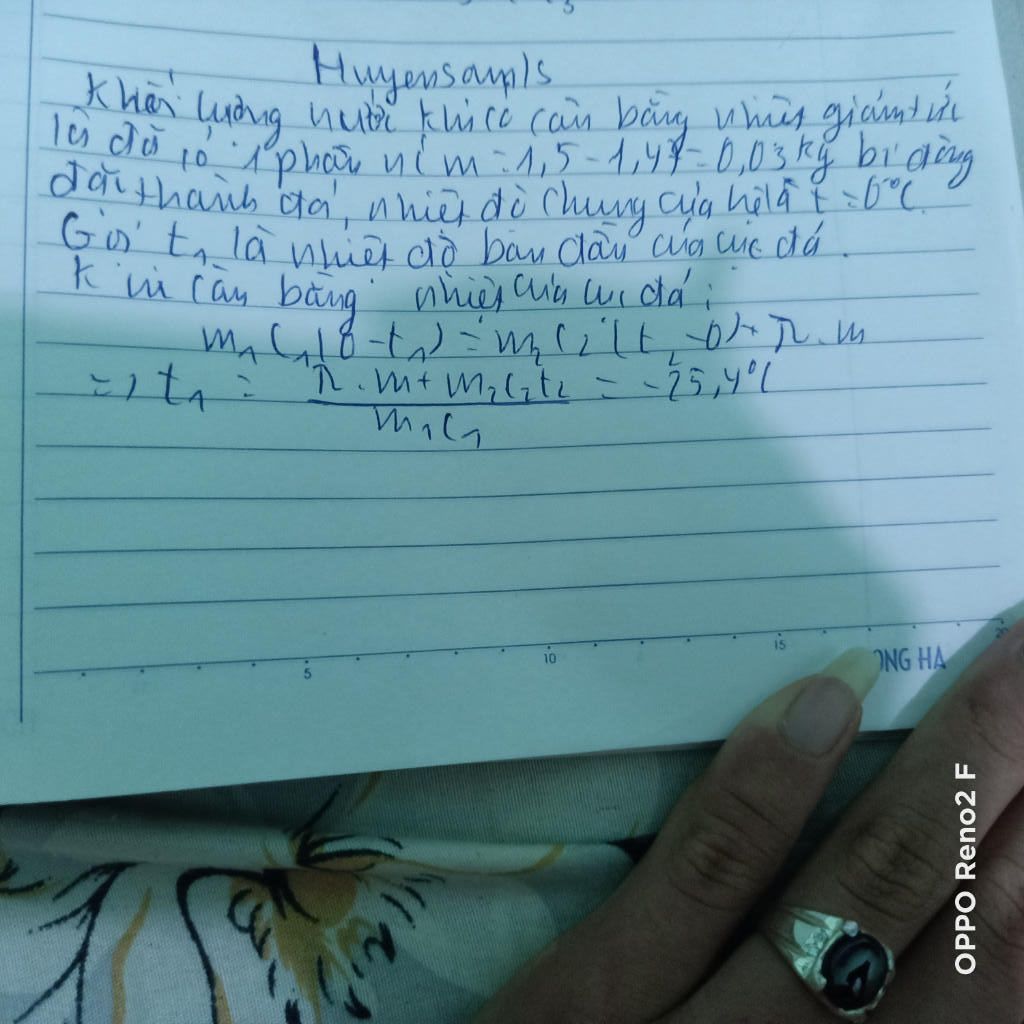 Huyensam1s
Khối lượng nước khi có cân bằng nhiệt giảm tức
là đã có 1 phần nước m = 1,5 - 1,47 = 0,03 kg bị đông
đặc thành đá, nhiệt độ chung của hệ là t = 0°C.
Gọi t₁ là nhiệt độ ban đầu của cục đá.
Khi cân bằng nhiệt của cục đá:
m₁c₁(0 - t₁) = m₂c₂(t₂ - 0) + λ.m
=> t₁ = λ.m + m₂c₂t₂ / m₁c₁ = -25,4°C
5 10 15 20
ONG HA
OPPO Reno2 F